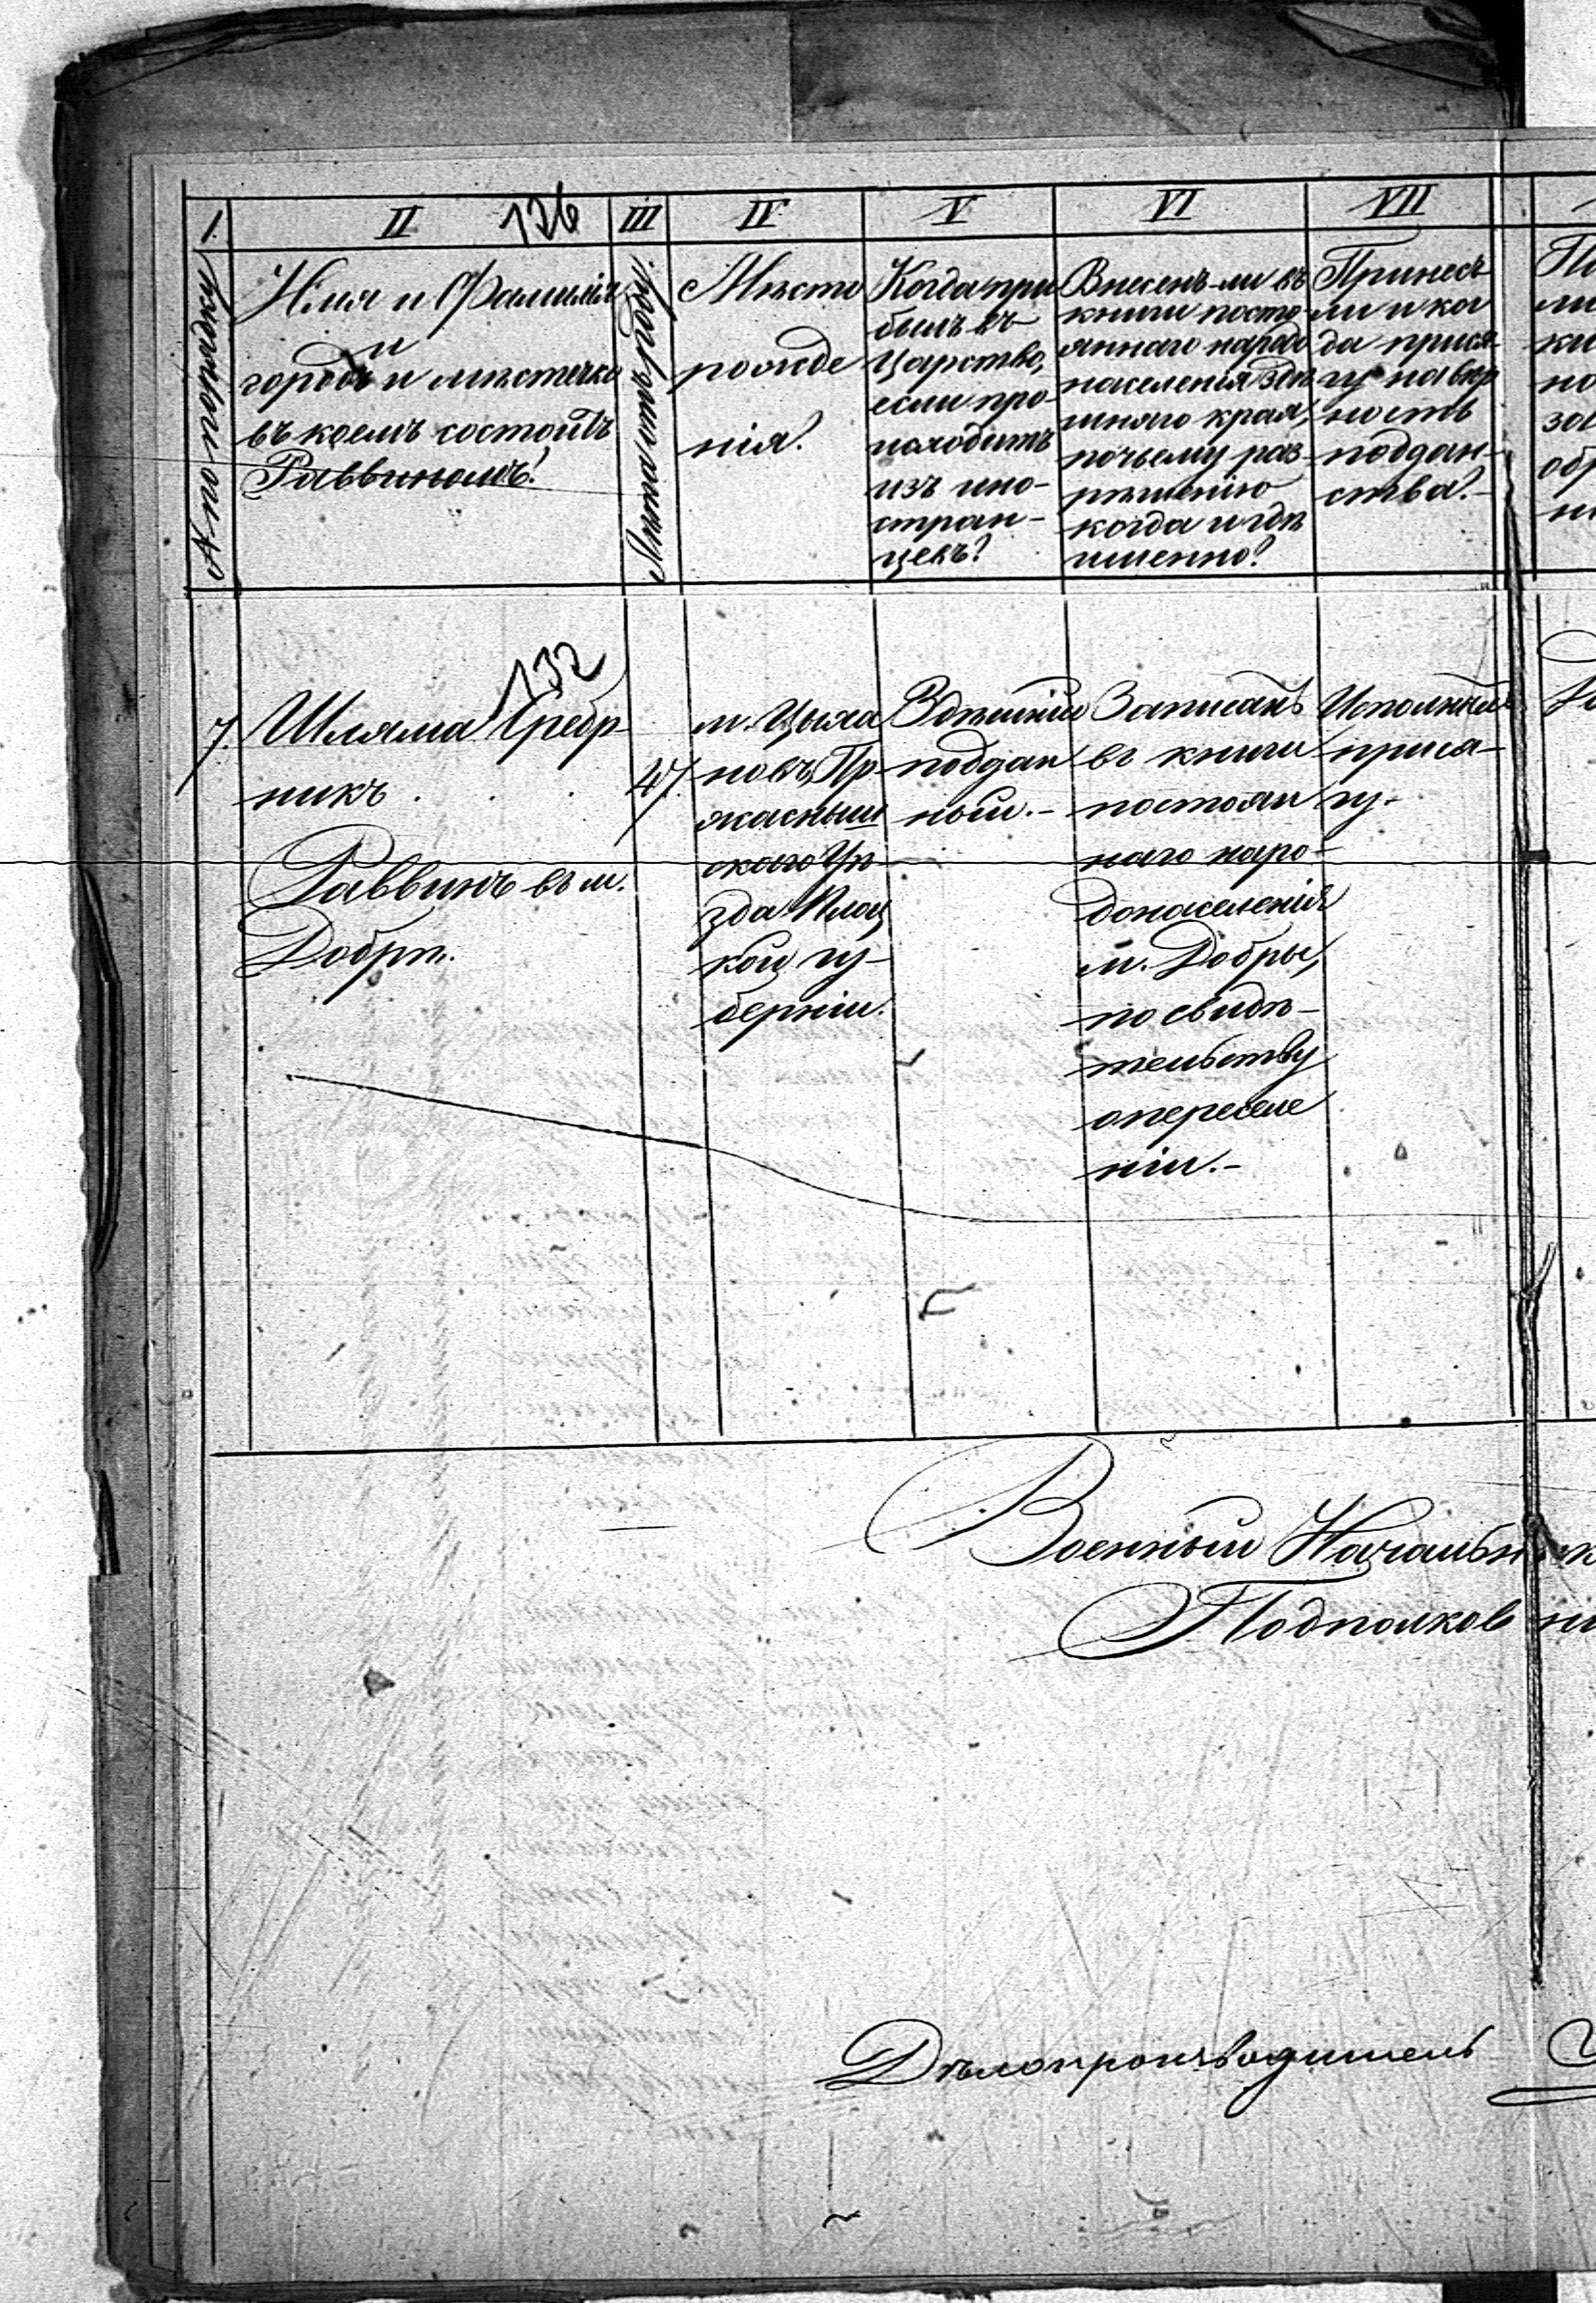 1.
II
126
III
IV
V
VI
VII
№ по порядку
Имя и Фамилія
и
городъ и мѣстечко
въ коемъ состоитъ
Раввиномъ?
Лѣта отъ роду.
Мѣсто
рожде
нія?
Когда при
былъ въ
Царство,
если про-
исходитъ
изъ ино-
стран-
цевъ?
Внесенъ-ли въ
книги посто
яннаго народо
населенія здѣ
шняго края,
по чьему раз-
рѣшенію
когда и гдѣ
именно?
Принесъ
ли и ког
да прися-
гу на вѣр
ность
поддан-
ства?-
7.
132
Шляма Сребр-
никъ . . .
Раввинъ въ м.
Добрѣ.
47.
м. Цѣха
новъ, Пр-
жасныш
скаго Уѣ-
зда Плоц
кой гу-
берніи.
Здѣшній
поддан
ный.-
Записанъ
въ книги
постоян
наго наро-
донаселенія
м. Добры,
по свидѣ-
тельству
о переселе
ніи.-
Исполнилъ
прися-
гу.
Военный Начальник
Подполков
Дѣлопроизводитель